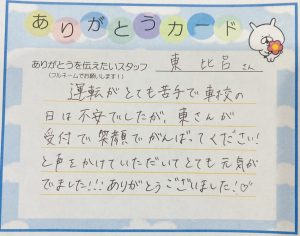 ありがとうカード
ありがとうを伝えたいスタッフ
(フルネームでお願いします！)
東 比呂 さん
運転がとても苦手で車校の
日は不安でしたが、東さんが
受付で笑顔でがんばってください!
と声をかけていただいてとても元気が
でました!!! ありがとうございました!♡